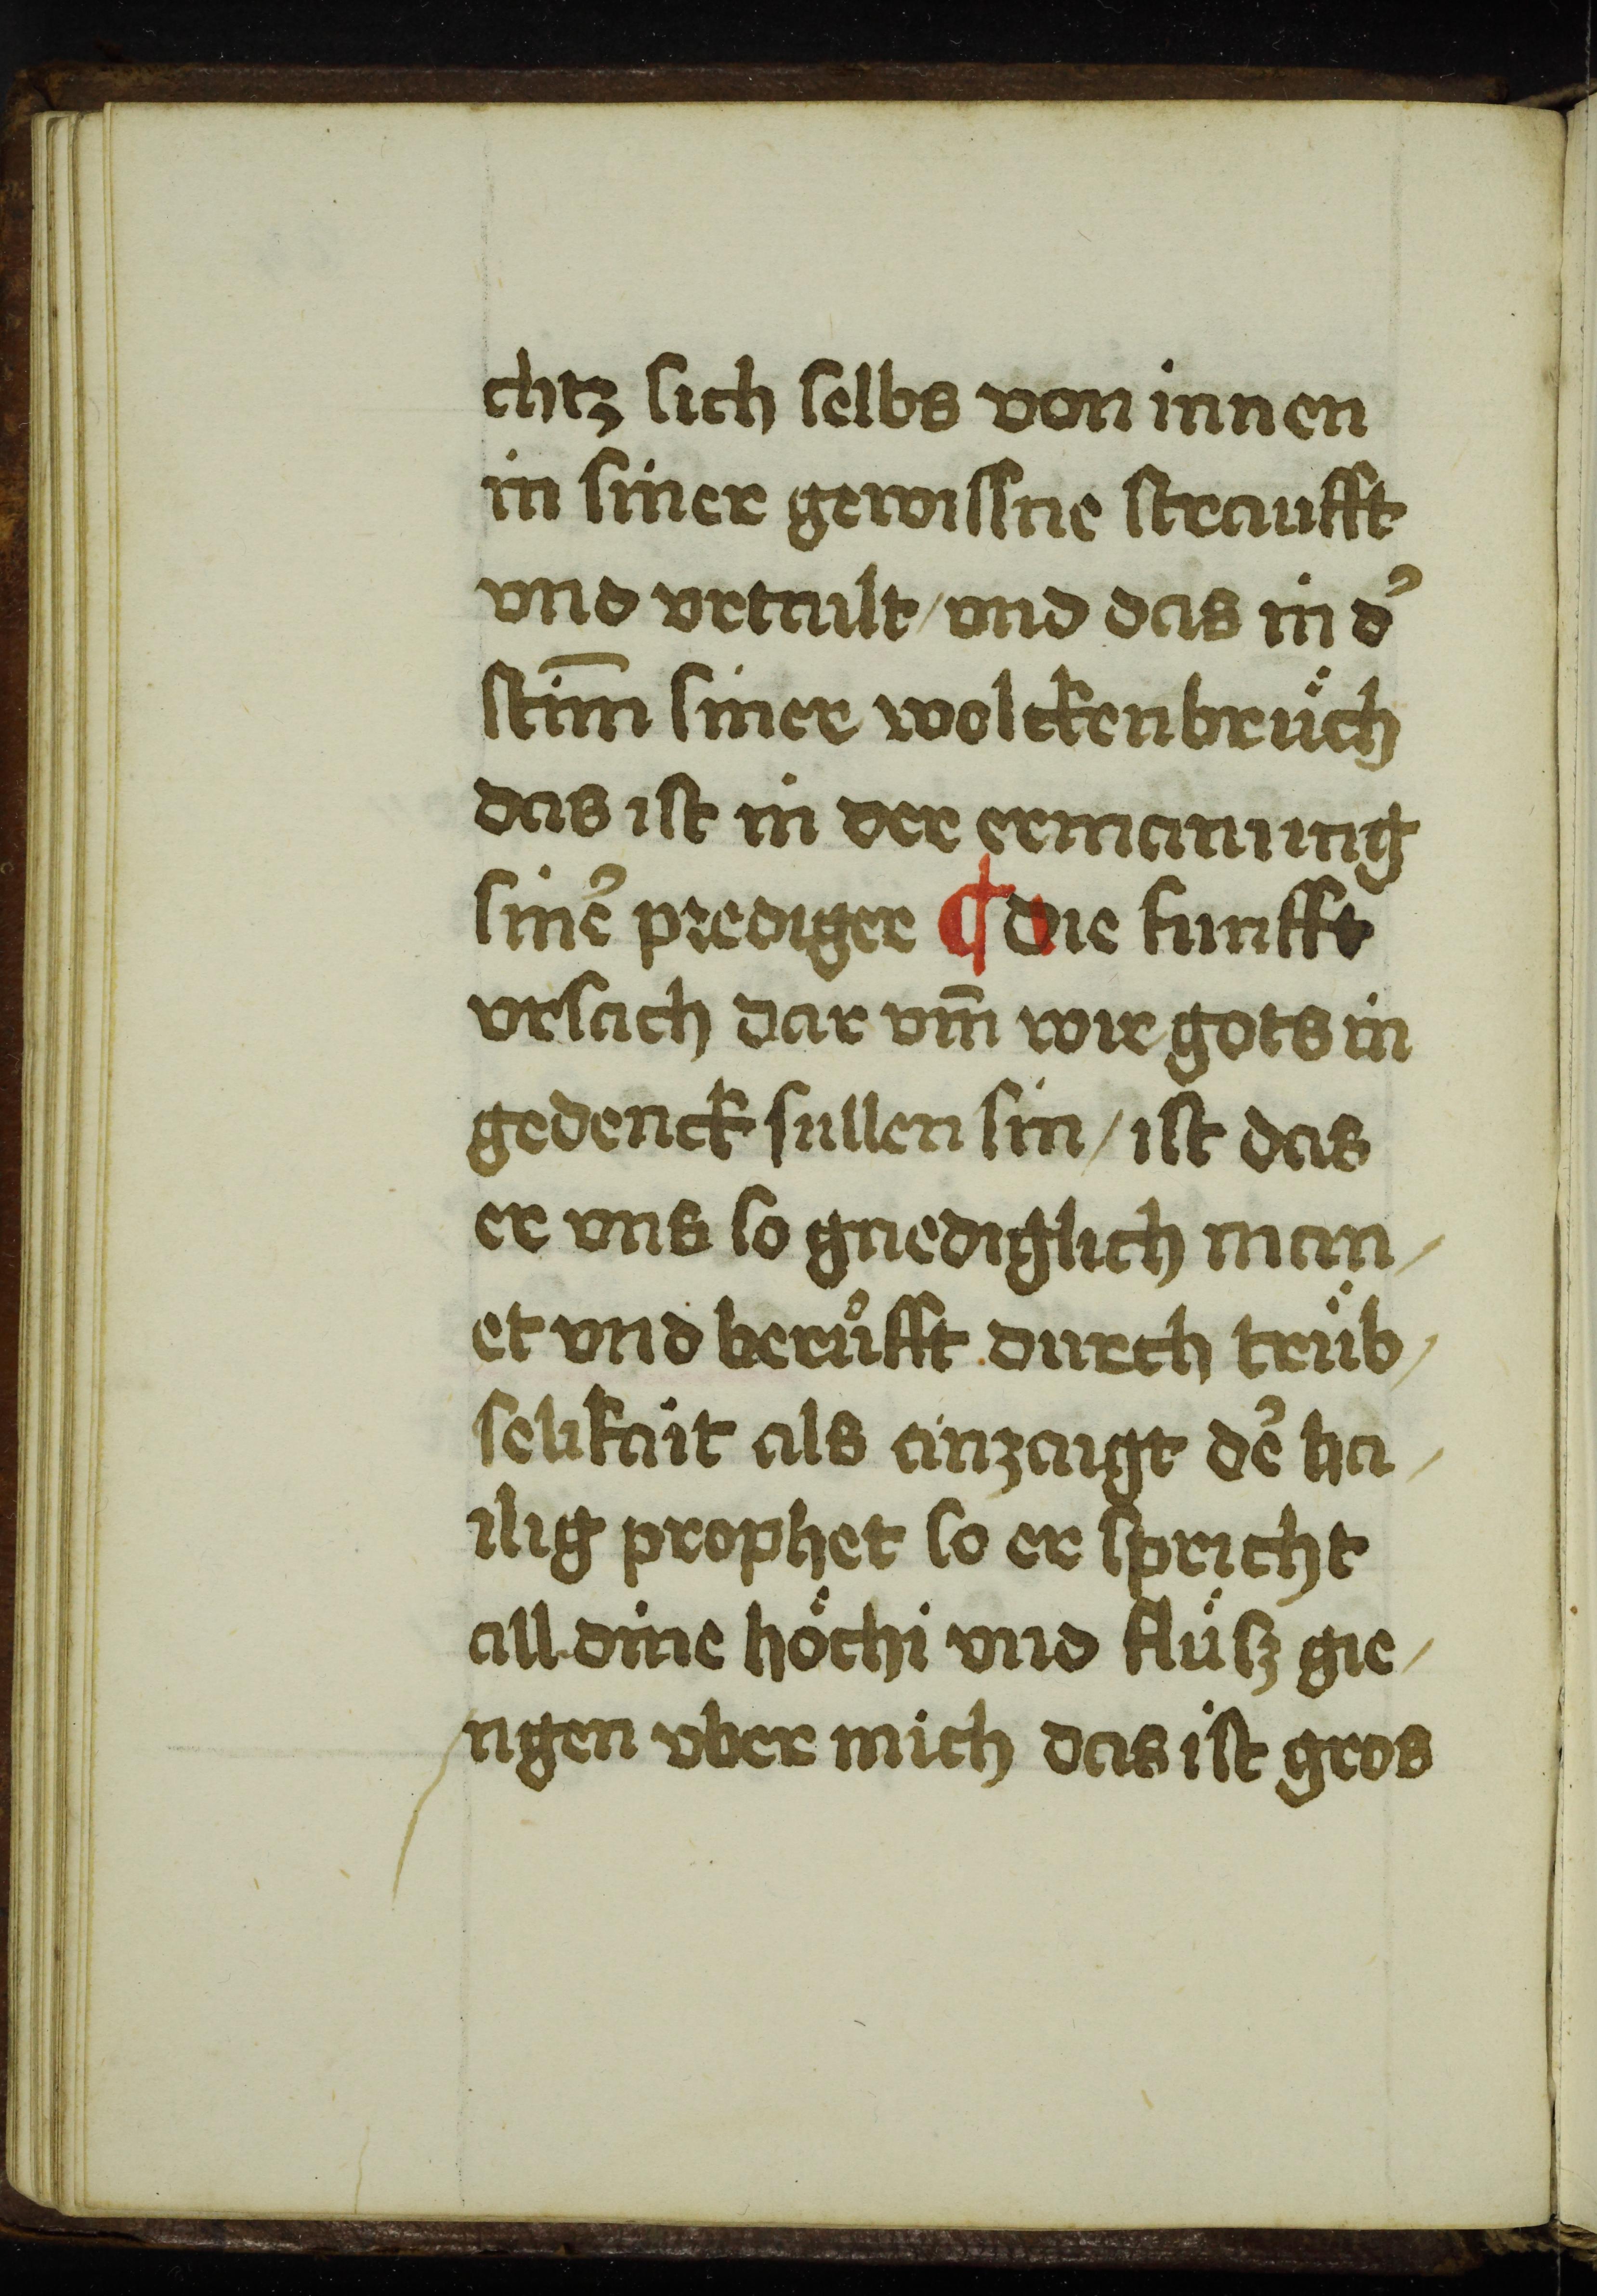 chtz sich selbs von innen
in siner gewissne straufft
vnd vrtailt / vnd das in d᾽
stim̅ siner wolckenbrüch
das ist in der ermanung
sine᾽ prediger ¶ die funfft
vrsach dar vm̅ wir gots in
gedenck sullen sin / ist das
er vns so gnediglich man /
et vnd berůfft durch trüb /
selikait als anzaigt de᾽ ha /
ilig prophet so er spricht
all dine höchi vnd flüsz gie /
ngen vber mich das ist gros